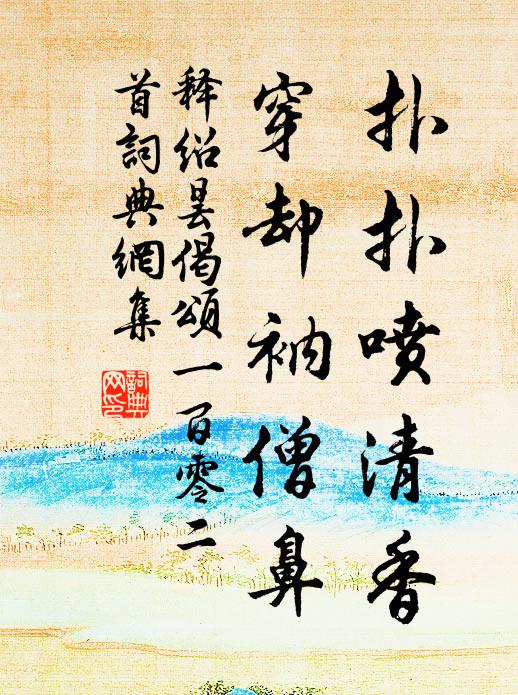 扑扑喷清香
穿却衲僧鼻
释绍昙偈頌一百零二
首詞典網集
詞典
网印